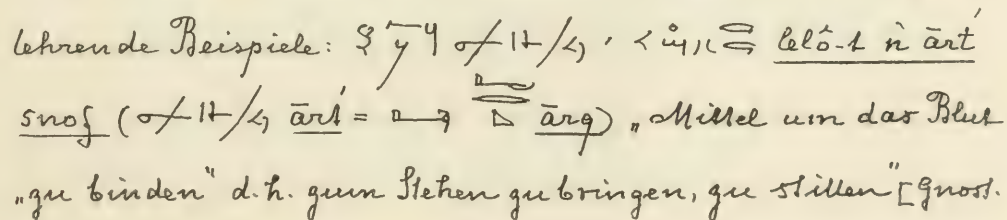 lehrende Beispiele: lelô-t ǹ ārt́
snof (ārt́ = ārq) „Mittel um das Blut
„zu binden" d.h. zum Stehen zu bringen, zu stillen" [Gnost.